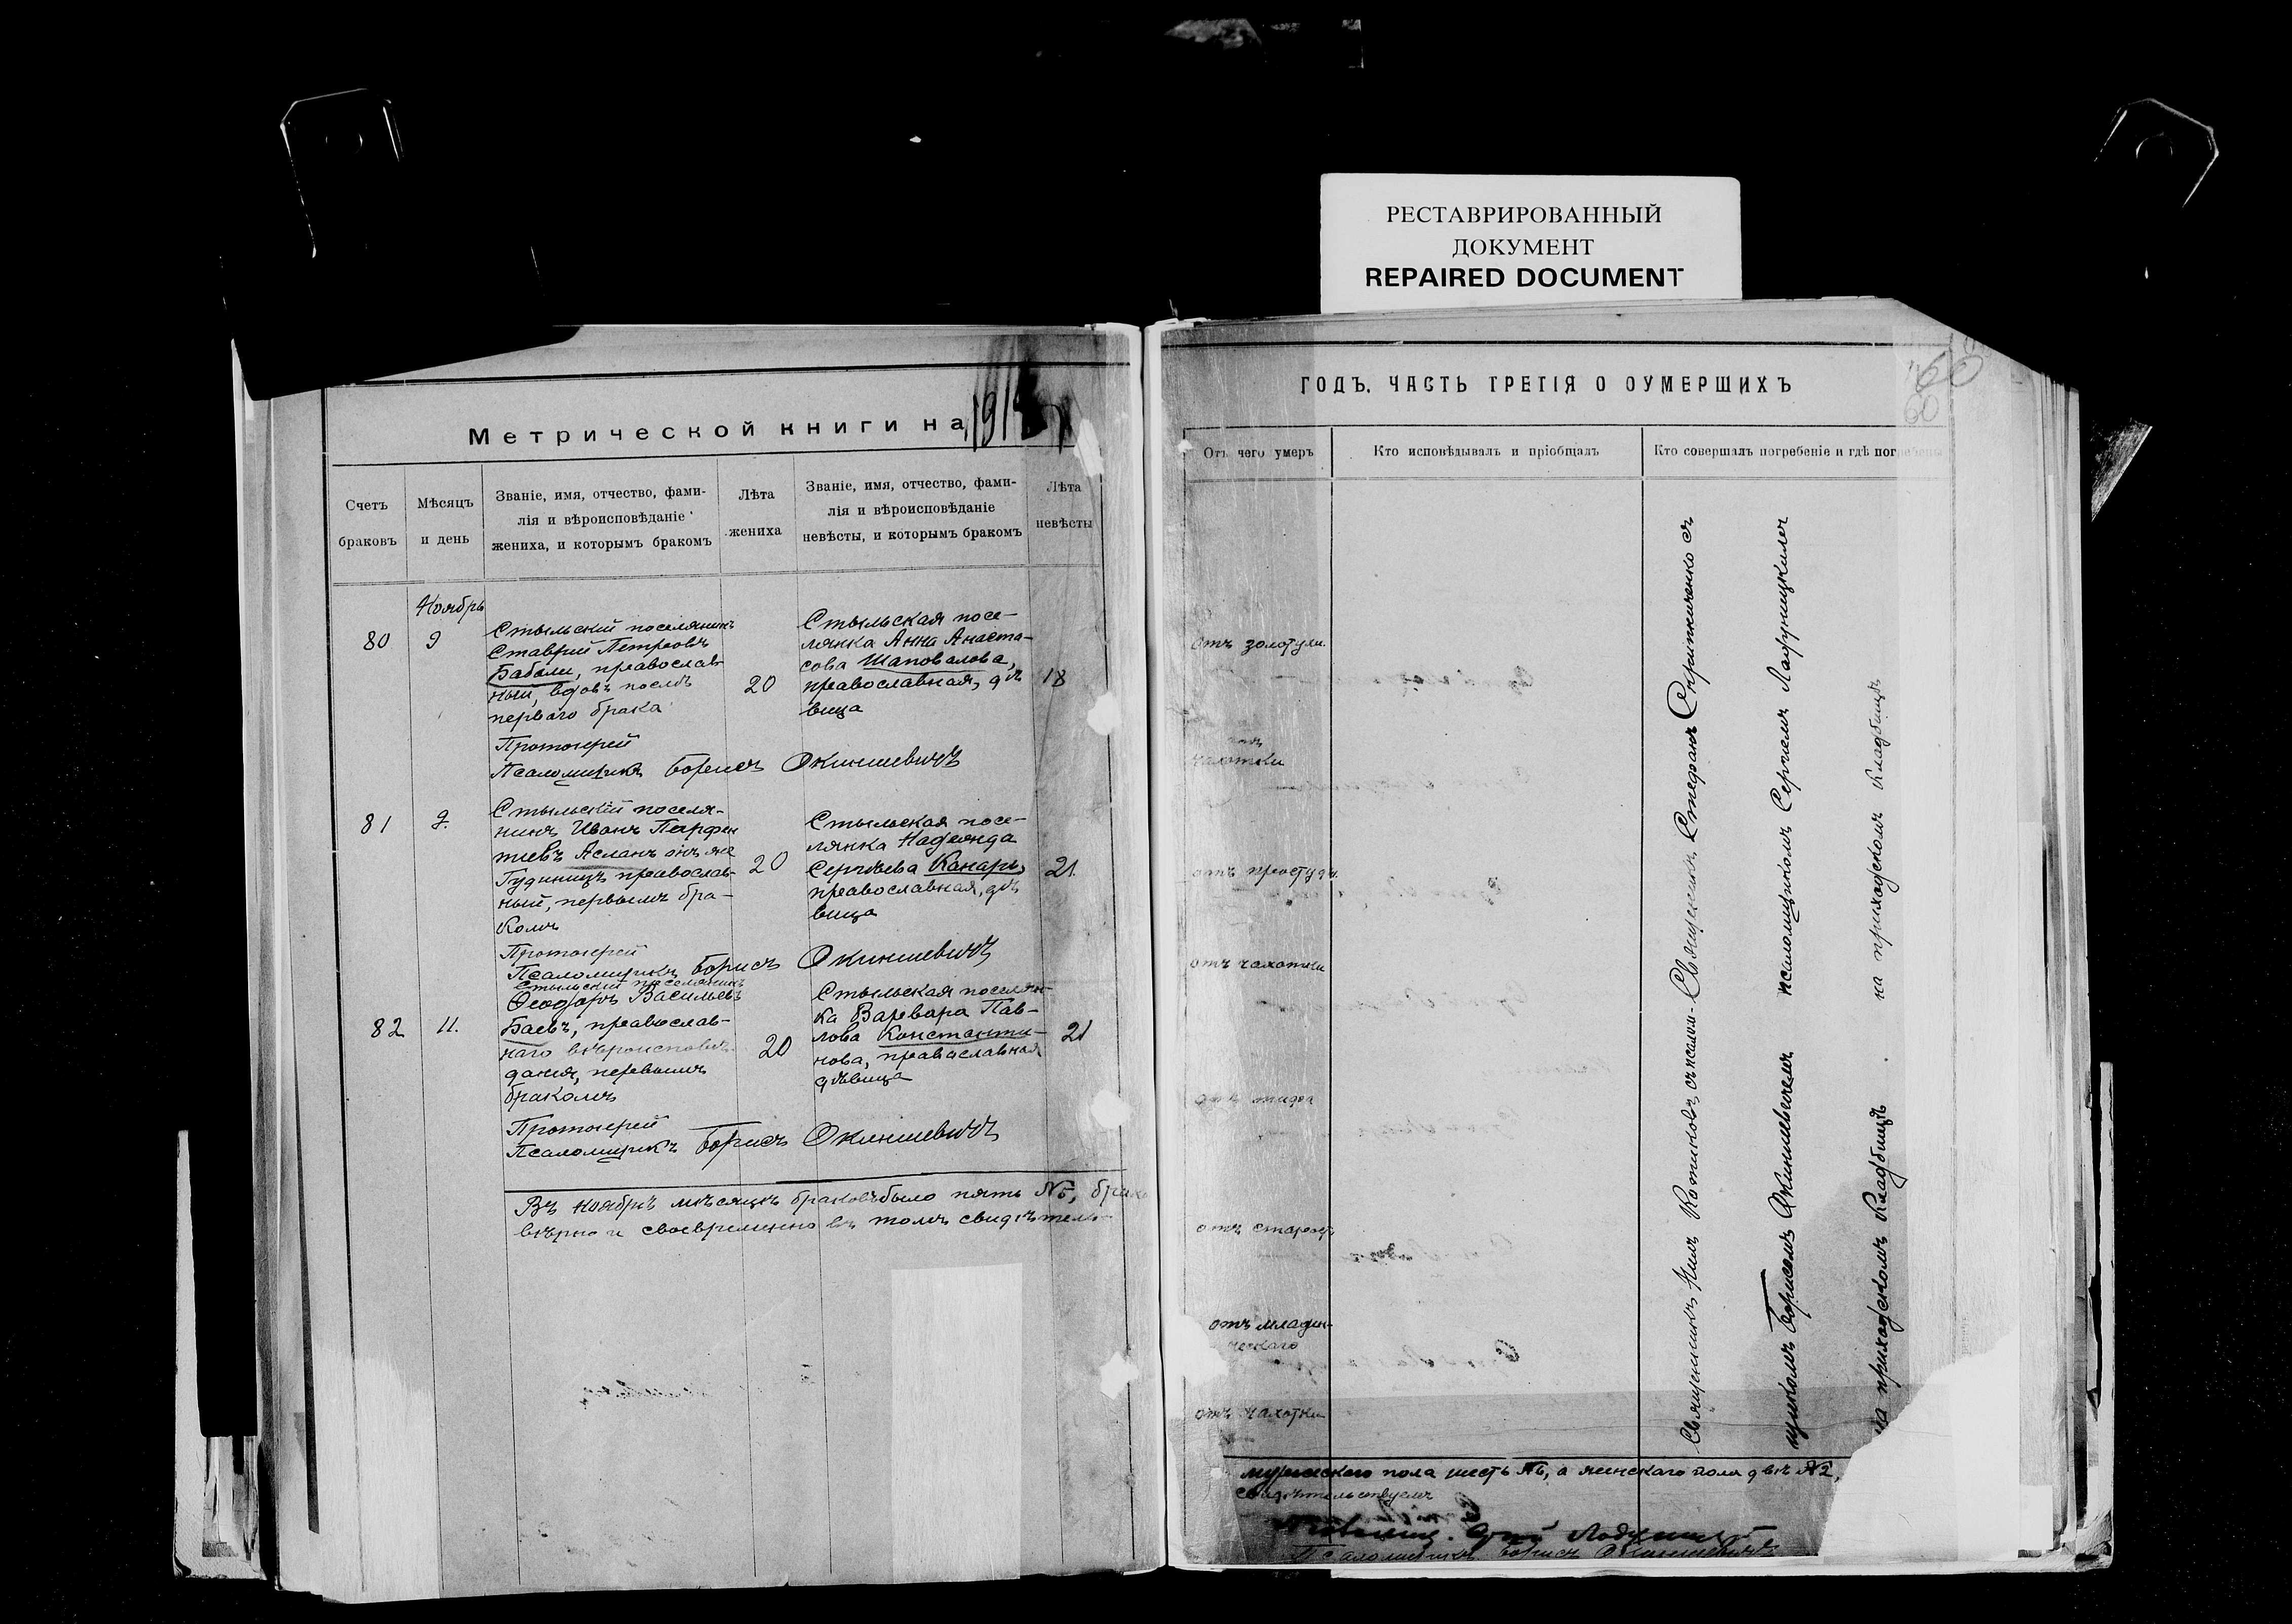 РЕСТАВРИРОВАННЫЙ
ДОКУМЕНТ
REPAIRED DOCUMENT
Метрической книги на 191
Счетъ браковъ
Мѣсяцъ и день
Званіе, имя, отчество, фами-
лія и вѣроисповѣданіе
жениха, и которымъ бракомъ
Лѣта жениха
Званіе, имя, отчество, фами-
лія и вѣроисповѣданіе
невѣсты, и которымъ бракомъ
Лѣта невѣсты
Ноябрь
80
9
Стыльский поселянинъ
Ставрий Петровъ
Бабали, православ-
ный, вдовъ послѣ
перваго брака
20
Стыльская посе-
лянка Анна Анаста-
сова Шаповалова,
православная, дѣ
вица
18
Протоиерей
Псаломщикъ Борисъ Окиншевичъ
81
9.
Стыльскій поселя-
нинъ Иванъ Парфен
тиевъ Асланъ онъ же
Гудиницъ православ-
ный, первымъ бра-
комъ
20
Стыльская посе-
лянка Надежда
Сергѣева Канаръ,
православная, дѣ
вица
21.
Протоиерей
Псаломщикъ Борисъ Окиншевичъ
82
11.
Стыльский поселянинъ
Ѳеодоръ Васильевъ
Баевъ, православ-
наго вѣроисповѣ-
дания, первымъ
бракомъ
20
Стыльская поселян-
ка Варвара Пав-
лова Константи-
нова, православная
дѣвица
21
Протоиерей
Псаломщикъ Борисъ Окиншевичъ
Въ ноябрѣ мѣсяцѣ браковъ было пять №5,
вѣрно и своевременно въ томъ свидѣтель-
ГОДЪ. ЧАСТЬ ТРЕТІЯ О ОУМЕРШИХЪ
60
60
Отъ чего умеръ
Кто исповѣдывалъ и пріобщалъ
Кто совершалъ погребеніе и гдѣ погребены
отъ золотухи.
отъ
чахотки
отъ простуды.
отъ чахотки
отъ
отъ старост
отъ младен-
ческаго
отъ чахотки
Священникъ Котиковъ съ псалом-
щикомъ Борисомъ Окиншевичемъ
на приходскомъ кладбищѣ.
Священникъ Стефанъ Скрипниченко съ
псаломщикомъ Сергиемъ
на приходскомъ кладбищѣ
мужескаго пола шесть №6, а женскаго пола двѣ №2,
свидѣтельствуемъ
Псаломщикъ Борисъ Окиншевичъ